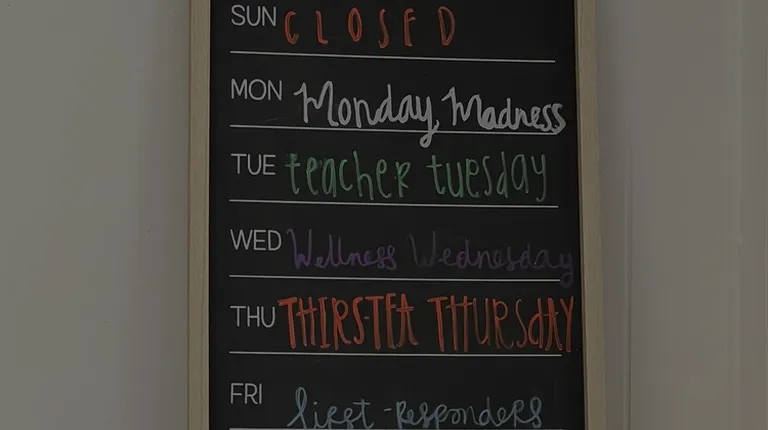 SUN CLOSED
MON Monday Madness
TUE teacher tuesday
WED Wellness Wednesday
THU THIRS-TEA THURSdAY
FRI first-responders